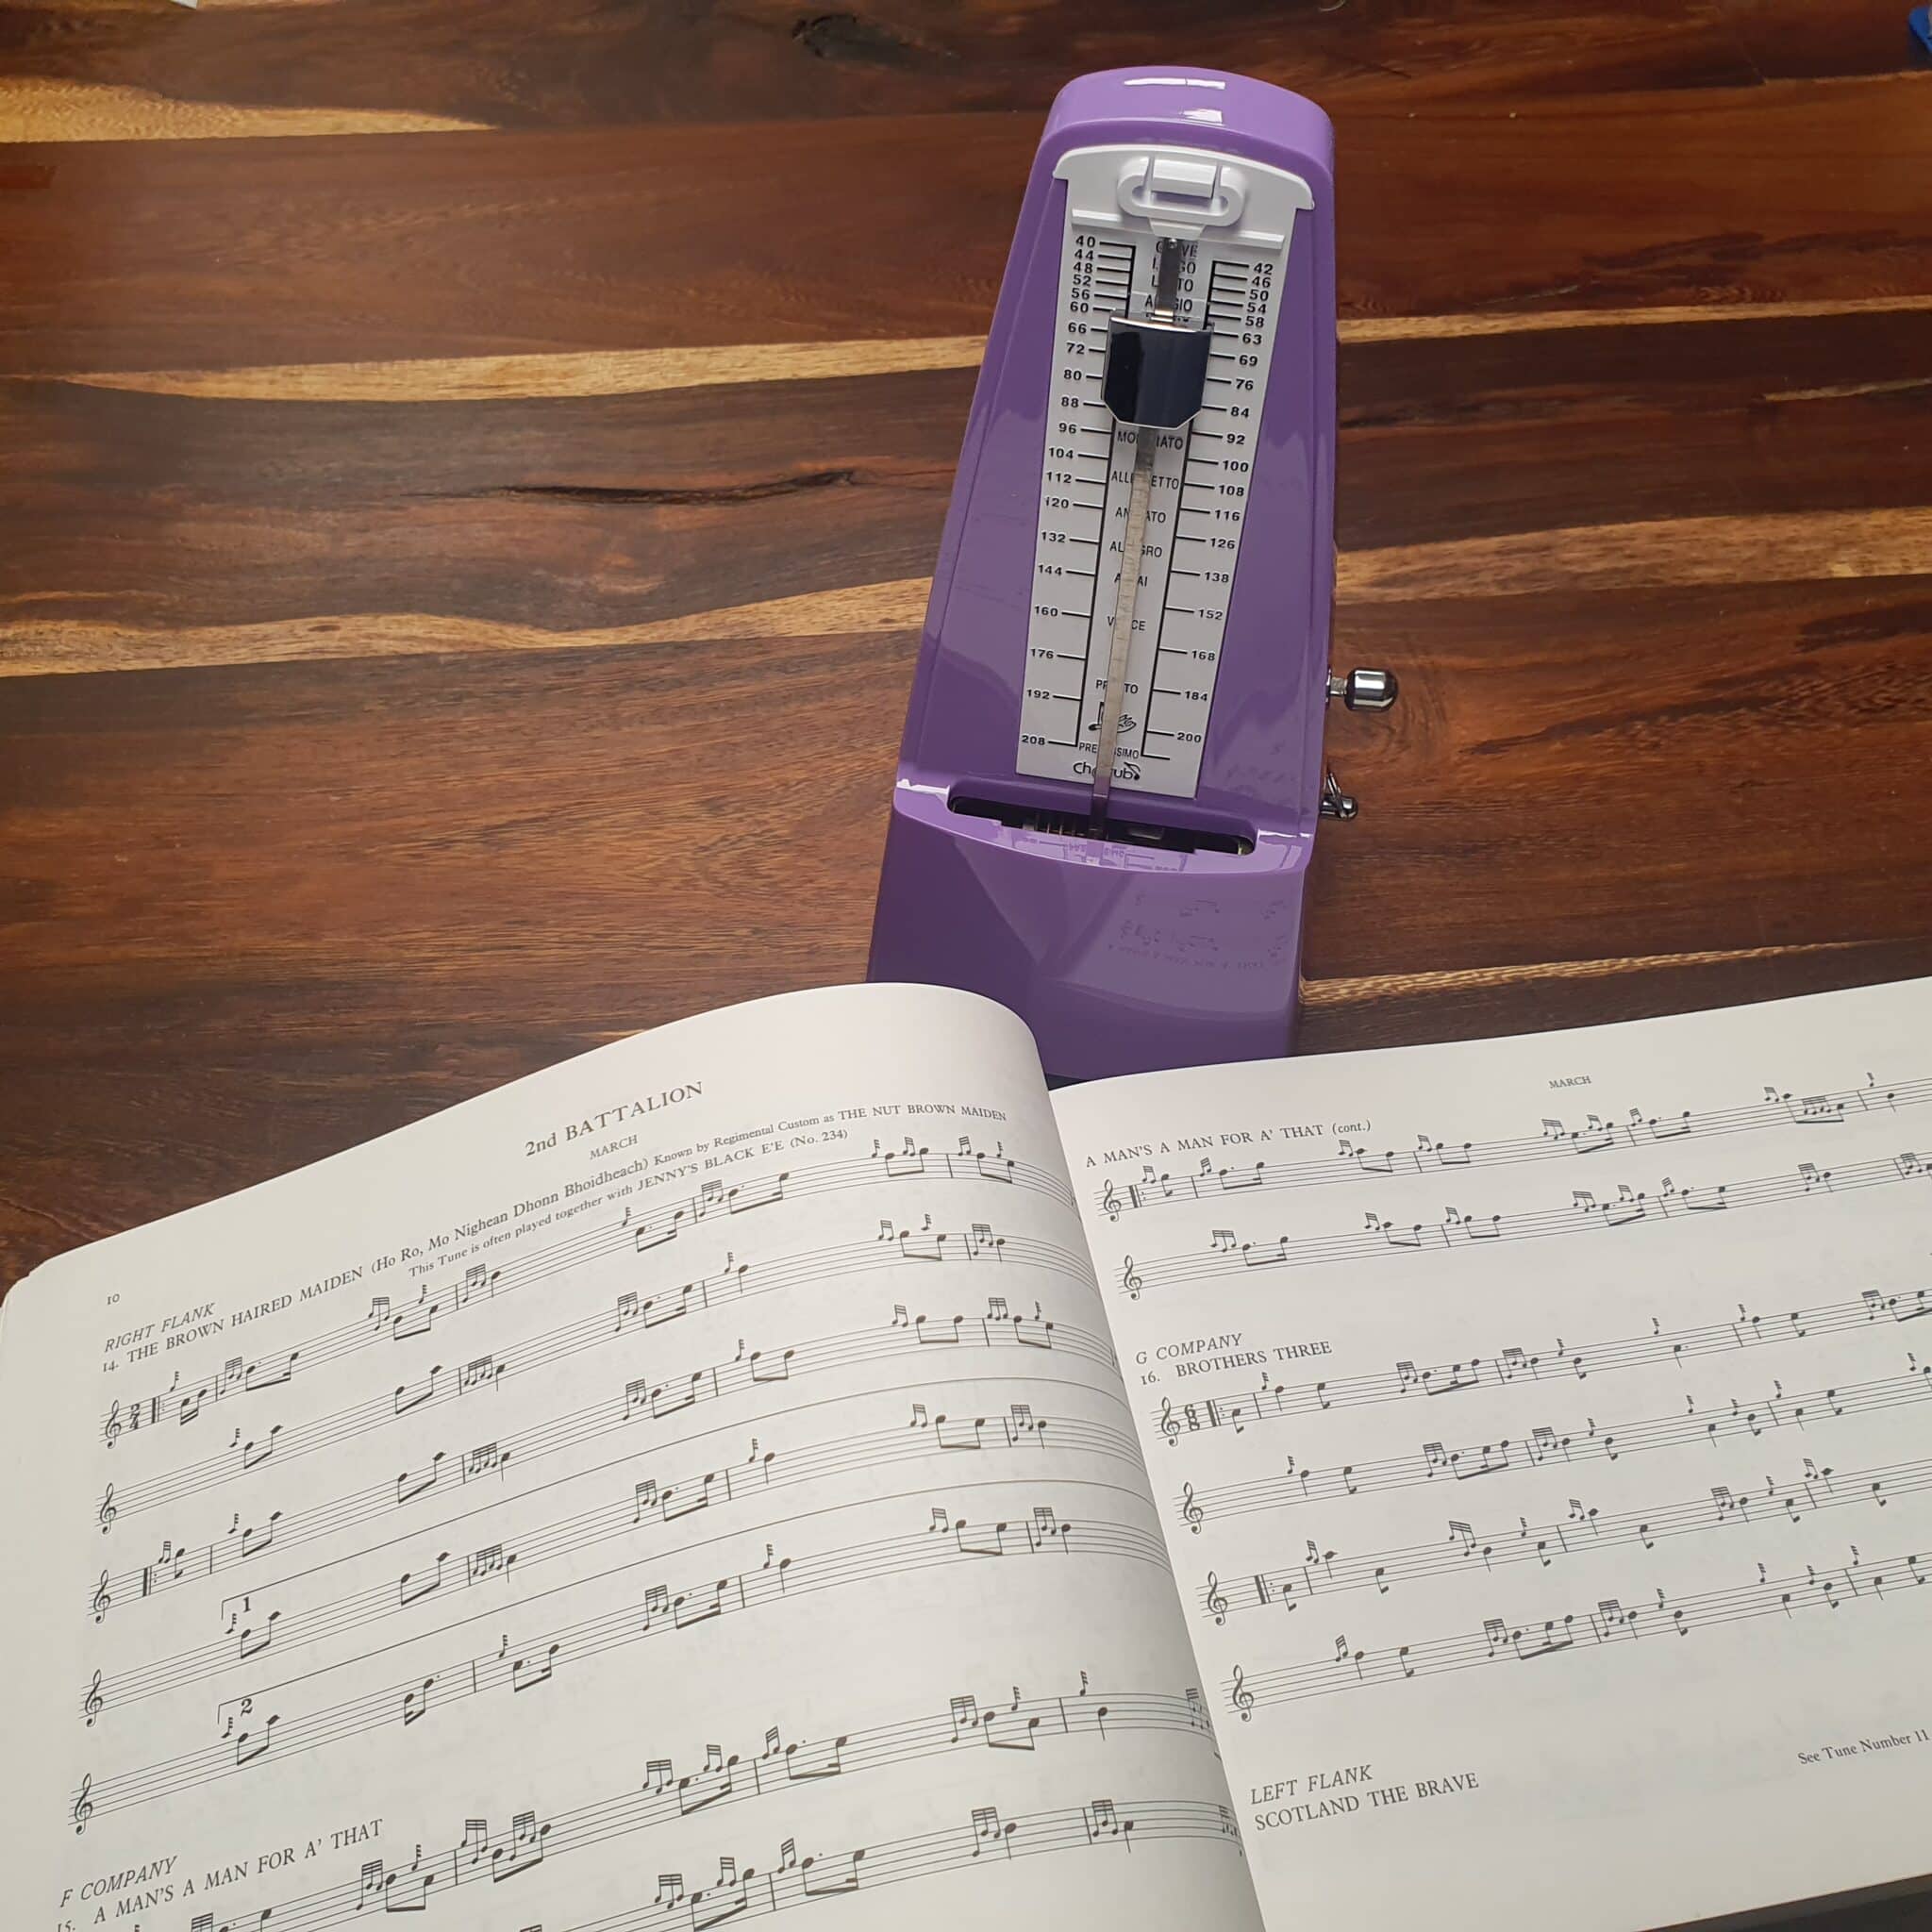 40
44
48
52
56
60
66
72
80
88
96
104
112
120
132
144
160
176
192
208
42
46
50
54
58
63
69
76
84
92
100
108
116
126
138
152
168
184
200
Cherub
10
2nd BATTALION
MARCH
RIGHT FLANK
14. THE BROWN HAIRED MAIDEN (Ho Ro, Mo Nighean Dhonn Bhoidheach) Known by Regimental Custom as THE NUT BROWN MAIDEN
This Tune is often played together with JENNY'S BLACK E'E (No. 234)
2
4
1
2
F COMPANY
15. A MAN'S A MAN FOR A' THAT
MARCH
A MAN'S A MAN FOR A' THAT (cont.)
G COMPANY
16. BROTHERS THREE
6
8
LEFT FLANK
SCOTLAND THE BRAVE
See Tune Number 11